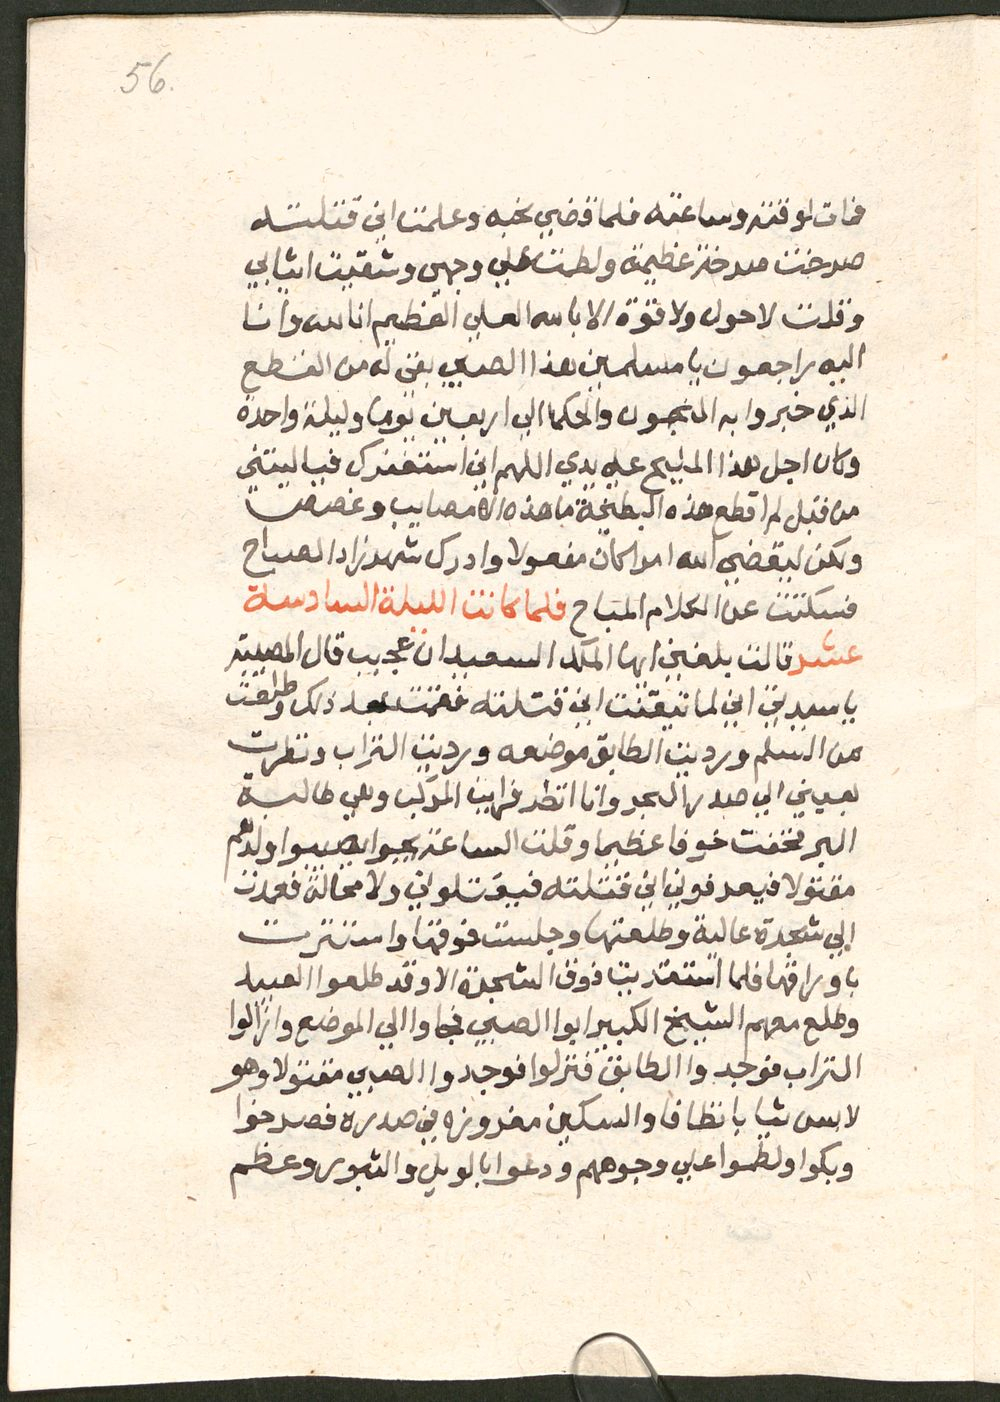 56.
فمات لوقته وساعته فلما قضي نحبه وعلمت اني قتلته
صرخت صرخة عظيمة ولطمت علي وجهي وشقيت اثيابي
وقلت لاحول ولا قوة الا بالله العلي العظيم انا لله وانا
اليه راجعون يا مسلمين هذا الصبي بقي له من القطع
الذي خبروا به المنجمون والحكما الي اربعين يوما وليلة واحدة
وكان اجل هذا المليح علي يدي اللهم اني استغفرك فياليتني
من قبل لم اقطع هذه البطيخة ما هذه الا مصايب وغصص
ولكن ليقضي الله امرا كان مفعولا وادرك شهرزاد الصباح
فسكتت عن الكلام المباح فلما كانت الليلة السادسة
عشر قالت بلغني ايها الملك السعيد ان عجيب قال المصيبة
يا سيدتي اني لما تيقنت اني قتلته فقمت بعد ذلك وطلعت
من السلم ورديت الطابق موضعه ورديت التراب ونظرت
بعيني الي صدر البحر وانا انظر فرايت المركب وهي طالبة
البر فخفت خوفا عظيما وقلت الساعة يجوا يصيبوا ولدهم
مقتولا فيعرفوني اني قتلته فيقتلوني ولا محالة فعمدت
الي شجرة عالية وطلعتها وجلست فوقها واستترت
باوراقها فلما استقريت فوق الشجرة الا وقد طلعوا العبيد
وطلع معهم الشيخ الكبير ابوا الصبي فجاوا الي الموضع وازالوا
التراب فوجدوا الطابق فنزلوا فوجدوا الصبي مقتولا وهو
لابس ثيابا نظافا والسكين مغروزه في صدره فصرخوا
وبكوا ولطموا علي وجوههم ودعوا بالويل والثبور وعظم